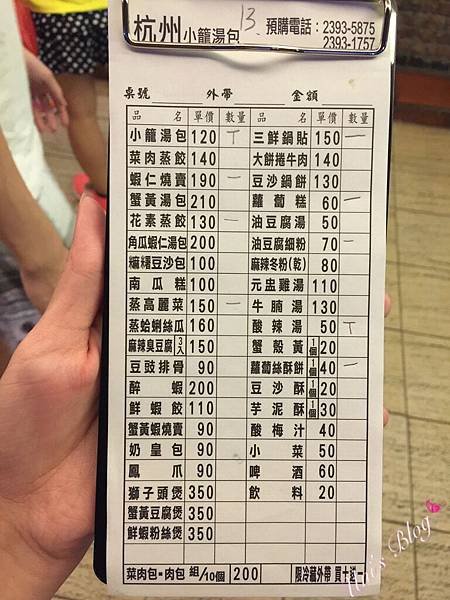 杭州小籠湯包 13. 預購電話：2393-5875
2393-1757
桌號 外帶 金額
品名 單價 數量 品名 單價 數量
小籠湯包 120 丅 三鮮鍋貼 150 一
菜肉蒸餃 140 大餅捲牛肉 140
蝦仁燒賣 190 一 豆沙鍋餅 130
蟹黃湯包 210 蘿蔔糕 60 一
花素蒸餃 130 一 油豆腐湯 50
角瓜蝦仁湯包 200 油豆腐細粉 70 一
糯糬豆沙包 100 麻辣冬粉(乾) 80
南瓜糕 100 元盅雞湯 110
蒸高麗菜 150 一 牛腩湯 130
蒸蛤蜊絲瓜 160 酸辣湯 50 丅
麻辣臭豆腐3入 150 蟹殼黃 1個 20
豆豉排骨 90 蘿蔔絲酥餅 1個 40 一
醉蝦 200 豆沙酥 1個 20
鮮蝦餃 110 芋泥酥 1個 30
蟹黃蝦燒賣 90 酸梅汁 40
奶皇包 90 小菜 50
鳳爪 90 啤酒 60
獅子頭煲 350 飲料 20
蟹黃豆腐煲 350
鮮蝦粉絲煲 350
菜肉包·肉包 組/10個 200 限冷藏外帶 買十送一
Blog